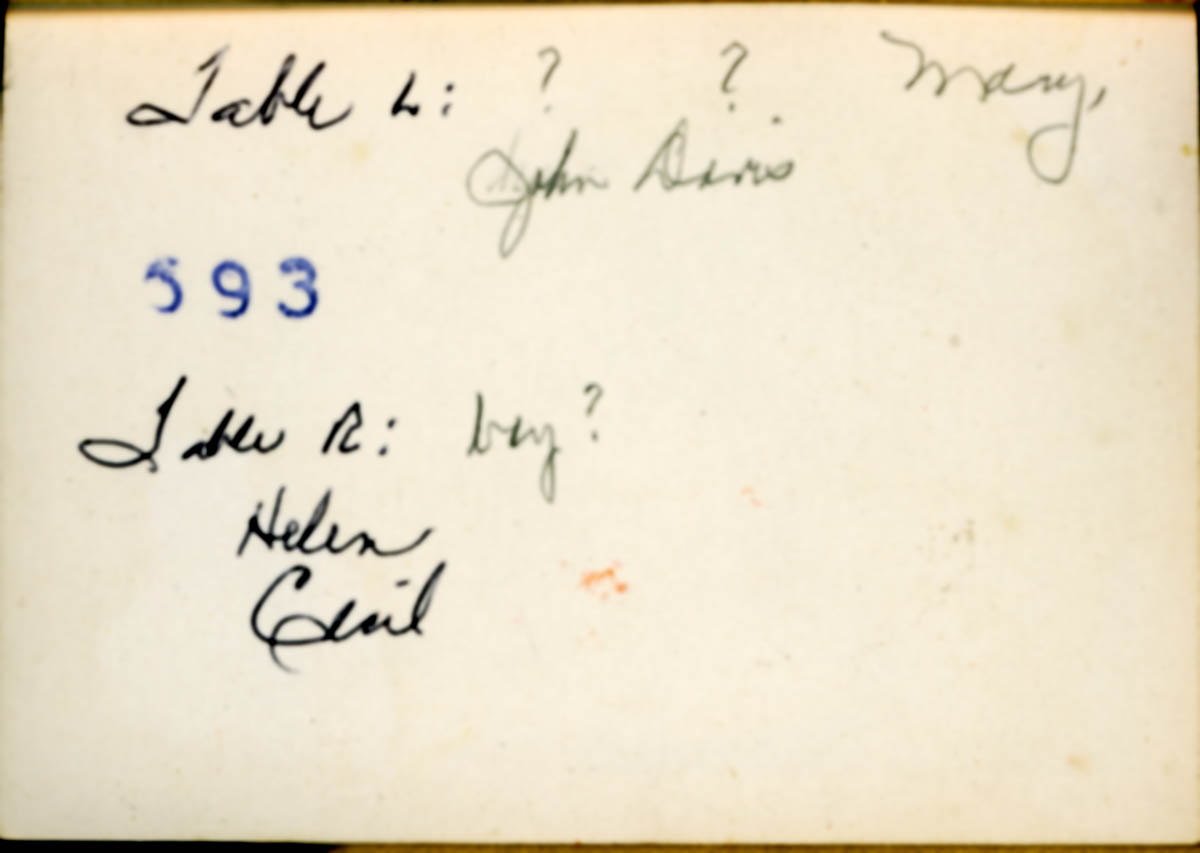 Table L: ? ? Mary,
John Davis
593
Table R: boy?
Helen
Cecil